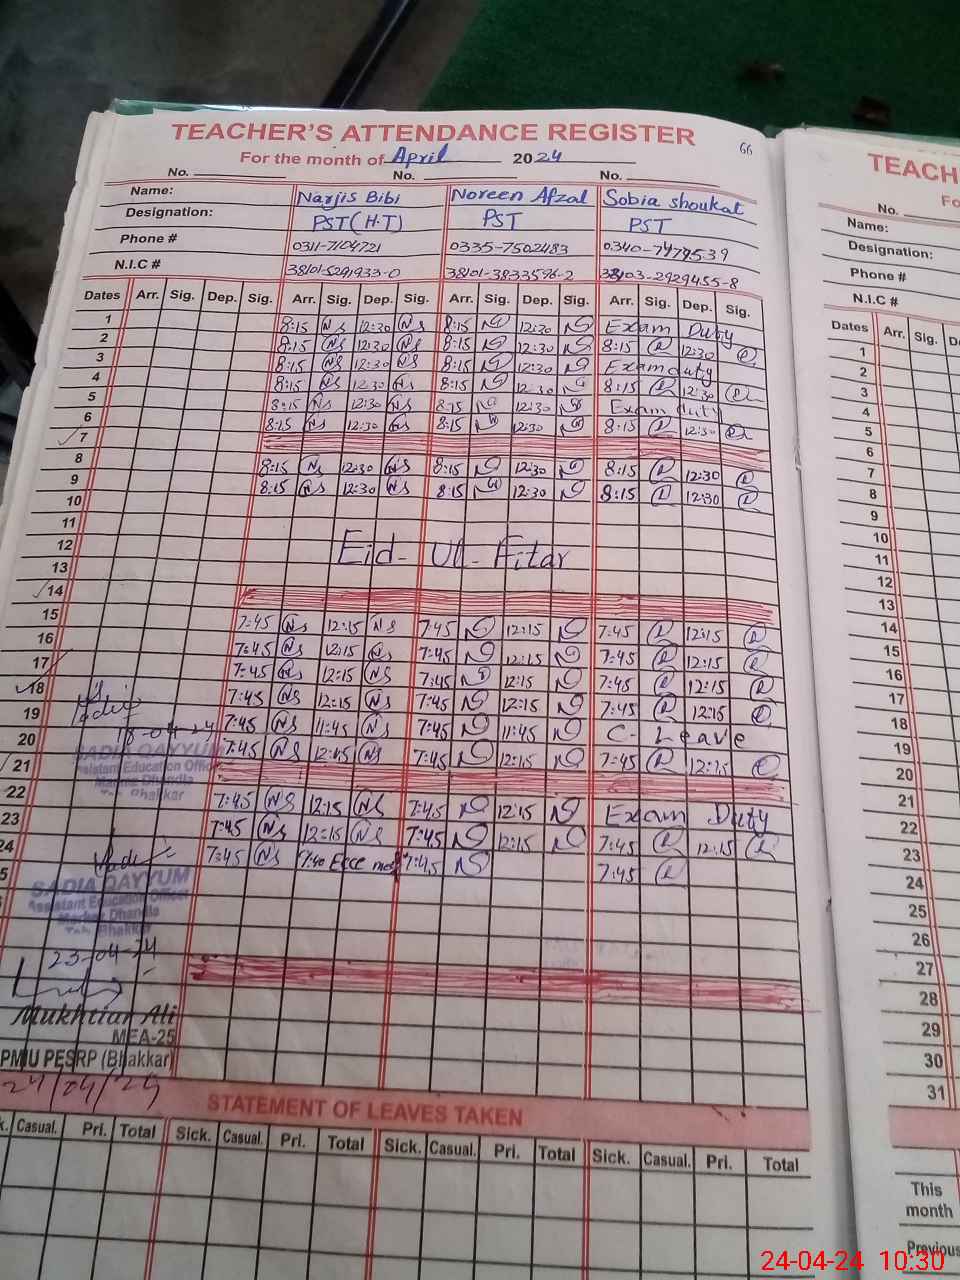 TEACHER'S ATTENDANCE REGISTER
66
For the month of April 2024
No. No. No.
Name: Narjis Bibi Noreen Afzal Sobia shoukat
Designation: PST (H.T) PST PST
Phone # 0311-7104721 0335-7502483 0340-7479539
N.I.C # 38101-5291933-0 38101-3833596-2 38103-2929455-8
Dates Arr. Sig. Dep. Sig. Arr. Sig. Dep. Sig. Arr. Sig. Dep. Sig. Arr. Sig. Dep. Sig.
1 8:15 NS 12:30 NS 8:15 12:30 Exam Duty
2 8:15 NS 12:30 NS 8:15 12:30 8:15 12:30
3 8:15 NS 12:30 NS 8:15 12:30 Exam duty
4 8:15 NS 12:30 NS 8:15 12:30 8:15 12:30
5 8:15 NS 12:30 NS 8:15 12:30 Exam duty
6 8:15 NS 12:30 NS 8:15 12:30 8:15 12:30
7
8 8:15 NS 12:30 NS 8:15 12:30 8:15 12:30
9 8:15 NS 12:30 NS 8:15 12:30 8:15 12:30
10
11
12 Eid-Ul-Fitar
13
14
15 7:45 NS 12:15 NS 7:45 12:15 7:45 12:15
16 7:45 NS 12:15 NS 7:45 12:15 7:45 12:15
17 7:45 NS 12:15 NS 7:45 12:15 7:45 12:15
18 7:45 NS 12:15 NS 7:45 12:15 7:45 12:15
19 7:45 NS 11:45 NS 7:45 11:45 C-Leave
20 7:45 NS 12:15 NS 7:45 12:15 7:45 12:15
21
22 7:45 NS 12:15 NS 7:45 12:15 Exam Duty
23 7:45 NS 12:15 NS 7:45 12:15 7:45 12:15
24 7:45 NS 7:40 ECCE 7:45 7:45
5
18-04-24
SADIA QAYYUM
Assistant Education Officer
Markaz Dhandla
Teh. Bhakkar
SADIA QAYYUM
Assistant Education Officer
Markaz Dhandla
Teh. Bhakkar
23-04-24
Mukhtiar Ali
MEA-25
PMIU PESRP (Bhakkar)
24/04/24
STATEMENT OF LEAVES TAKEN
k. Casual. Pri. Total Sick. Casual. Pri. Total Sick. Casual. Pri. Total Sick. Casual. Pri. Total
TEACH
Fo
No.
Name:
Designation:
Phone #
N.I.C #
Dates Arr. Sig. De
1
2
3
4
5
6
7
8
9
10
11
12
13
14
15
16
17
18
19
20
21
22
23
24
25
26
27
28
29
30
31
This
month
Previous
24-04-24 10:30